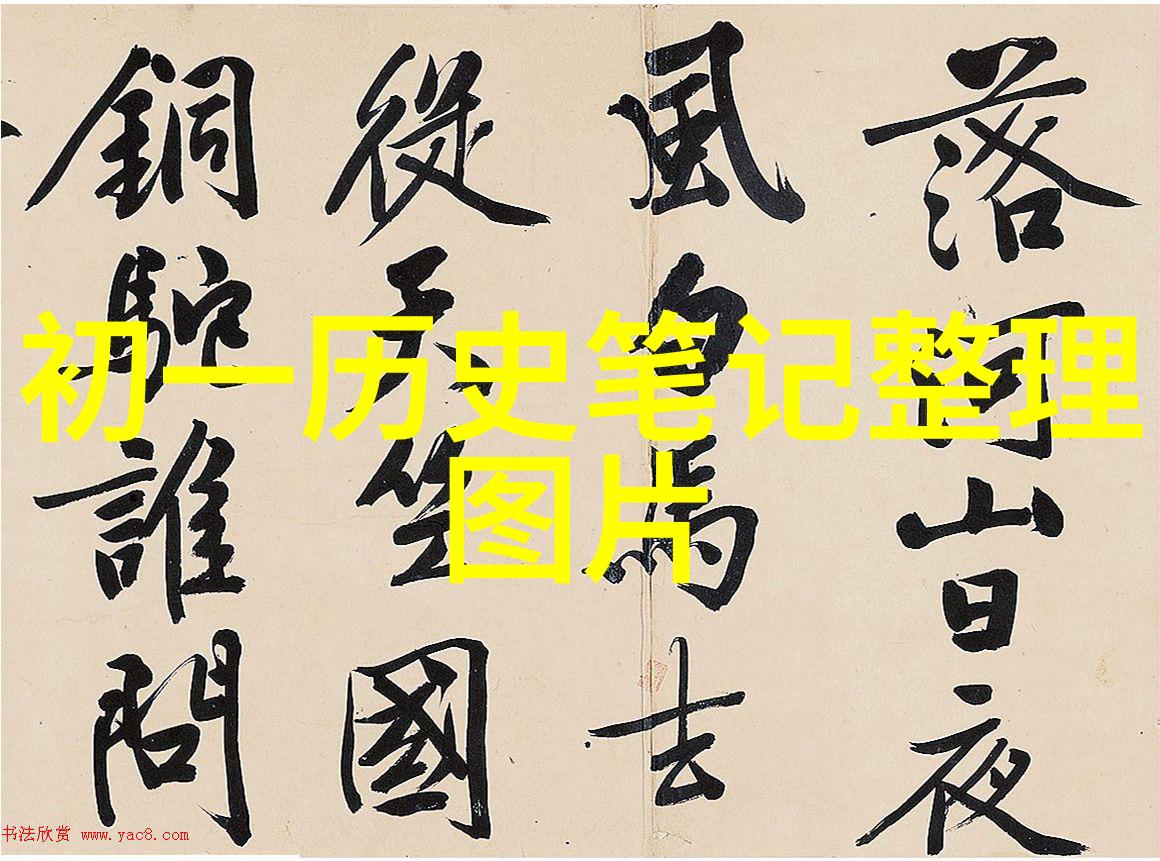 初一历史笔记整理
图片
落山日夜
風白馬去
從天竺國
銅駝誰問
书法欣赏 www.yac8.com